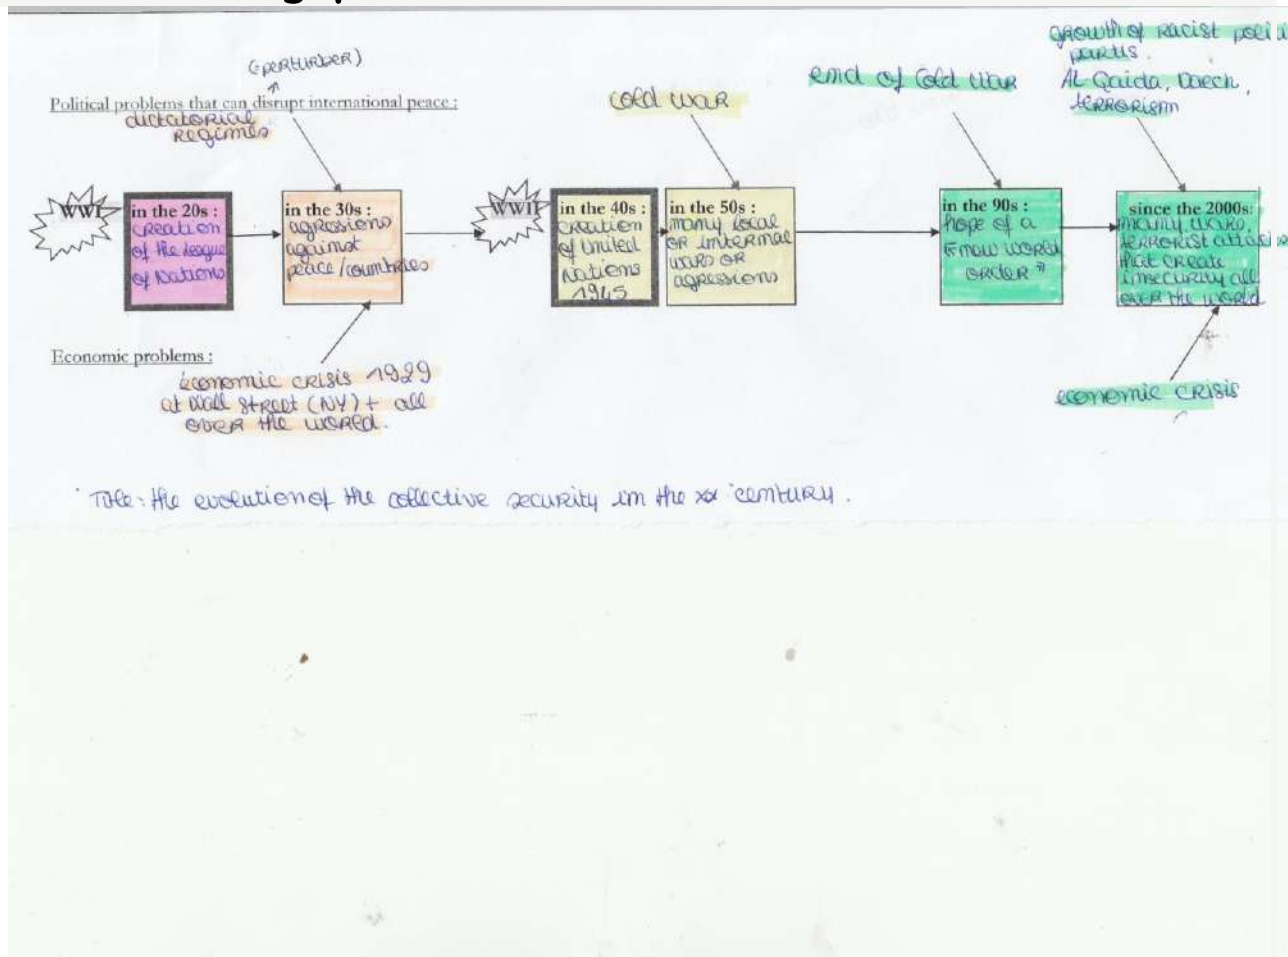 (perturber)
Political problems that can disrupt international peace :
dictatorial
regimes
cold war
end of Cold War
growth of racist politi
partis.
Al-Qaida, Daech,
terrorism
WWI
in the 20s :
creation
of the league
of Nations
in the 30s :
agressions
against
peace/countries
WWII
in the 40s :
creation
of United
Nations
1945
in the 50s :
many local
or internal
wars or
agressions
in the 90s :
hope of a
"new world
order"
since the 2000s:
many wars,
terrorist attacks
that create
insecurity all
over the world
Economic problems :
economic crisis 1929
at Wall Street (NY) + all
over the world.
economic crisis
Title: the evolution of the collective security in the xx century.